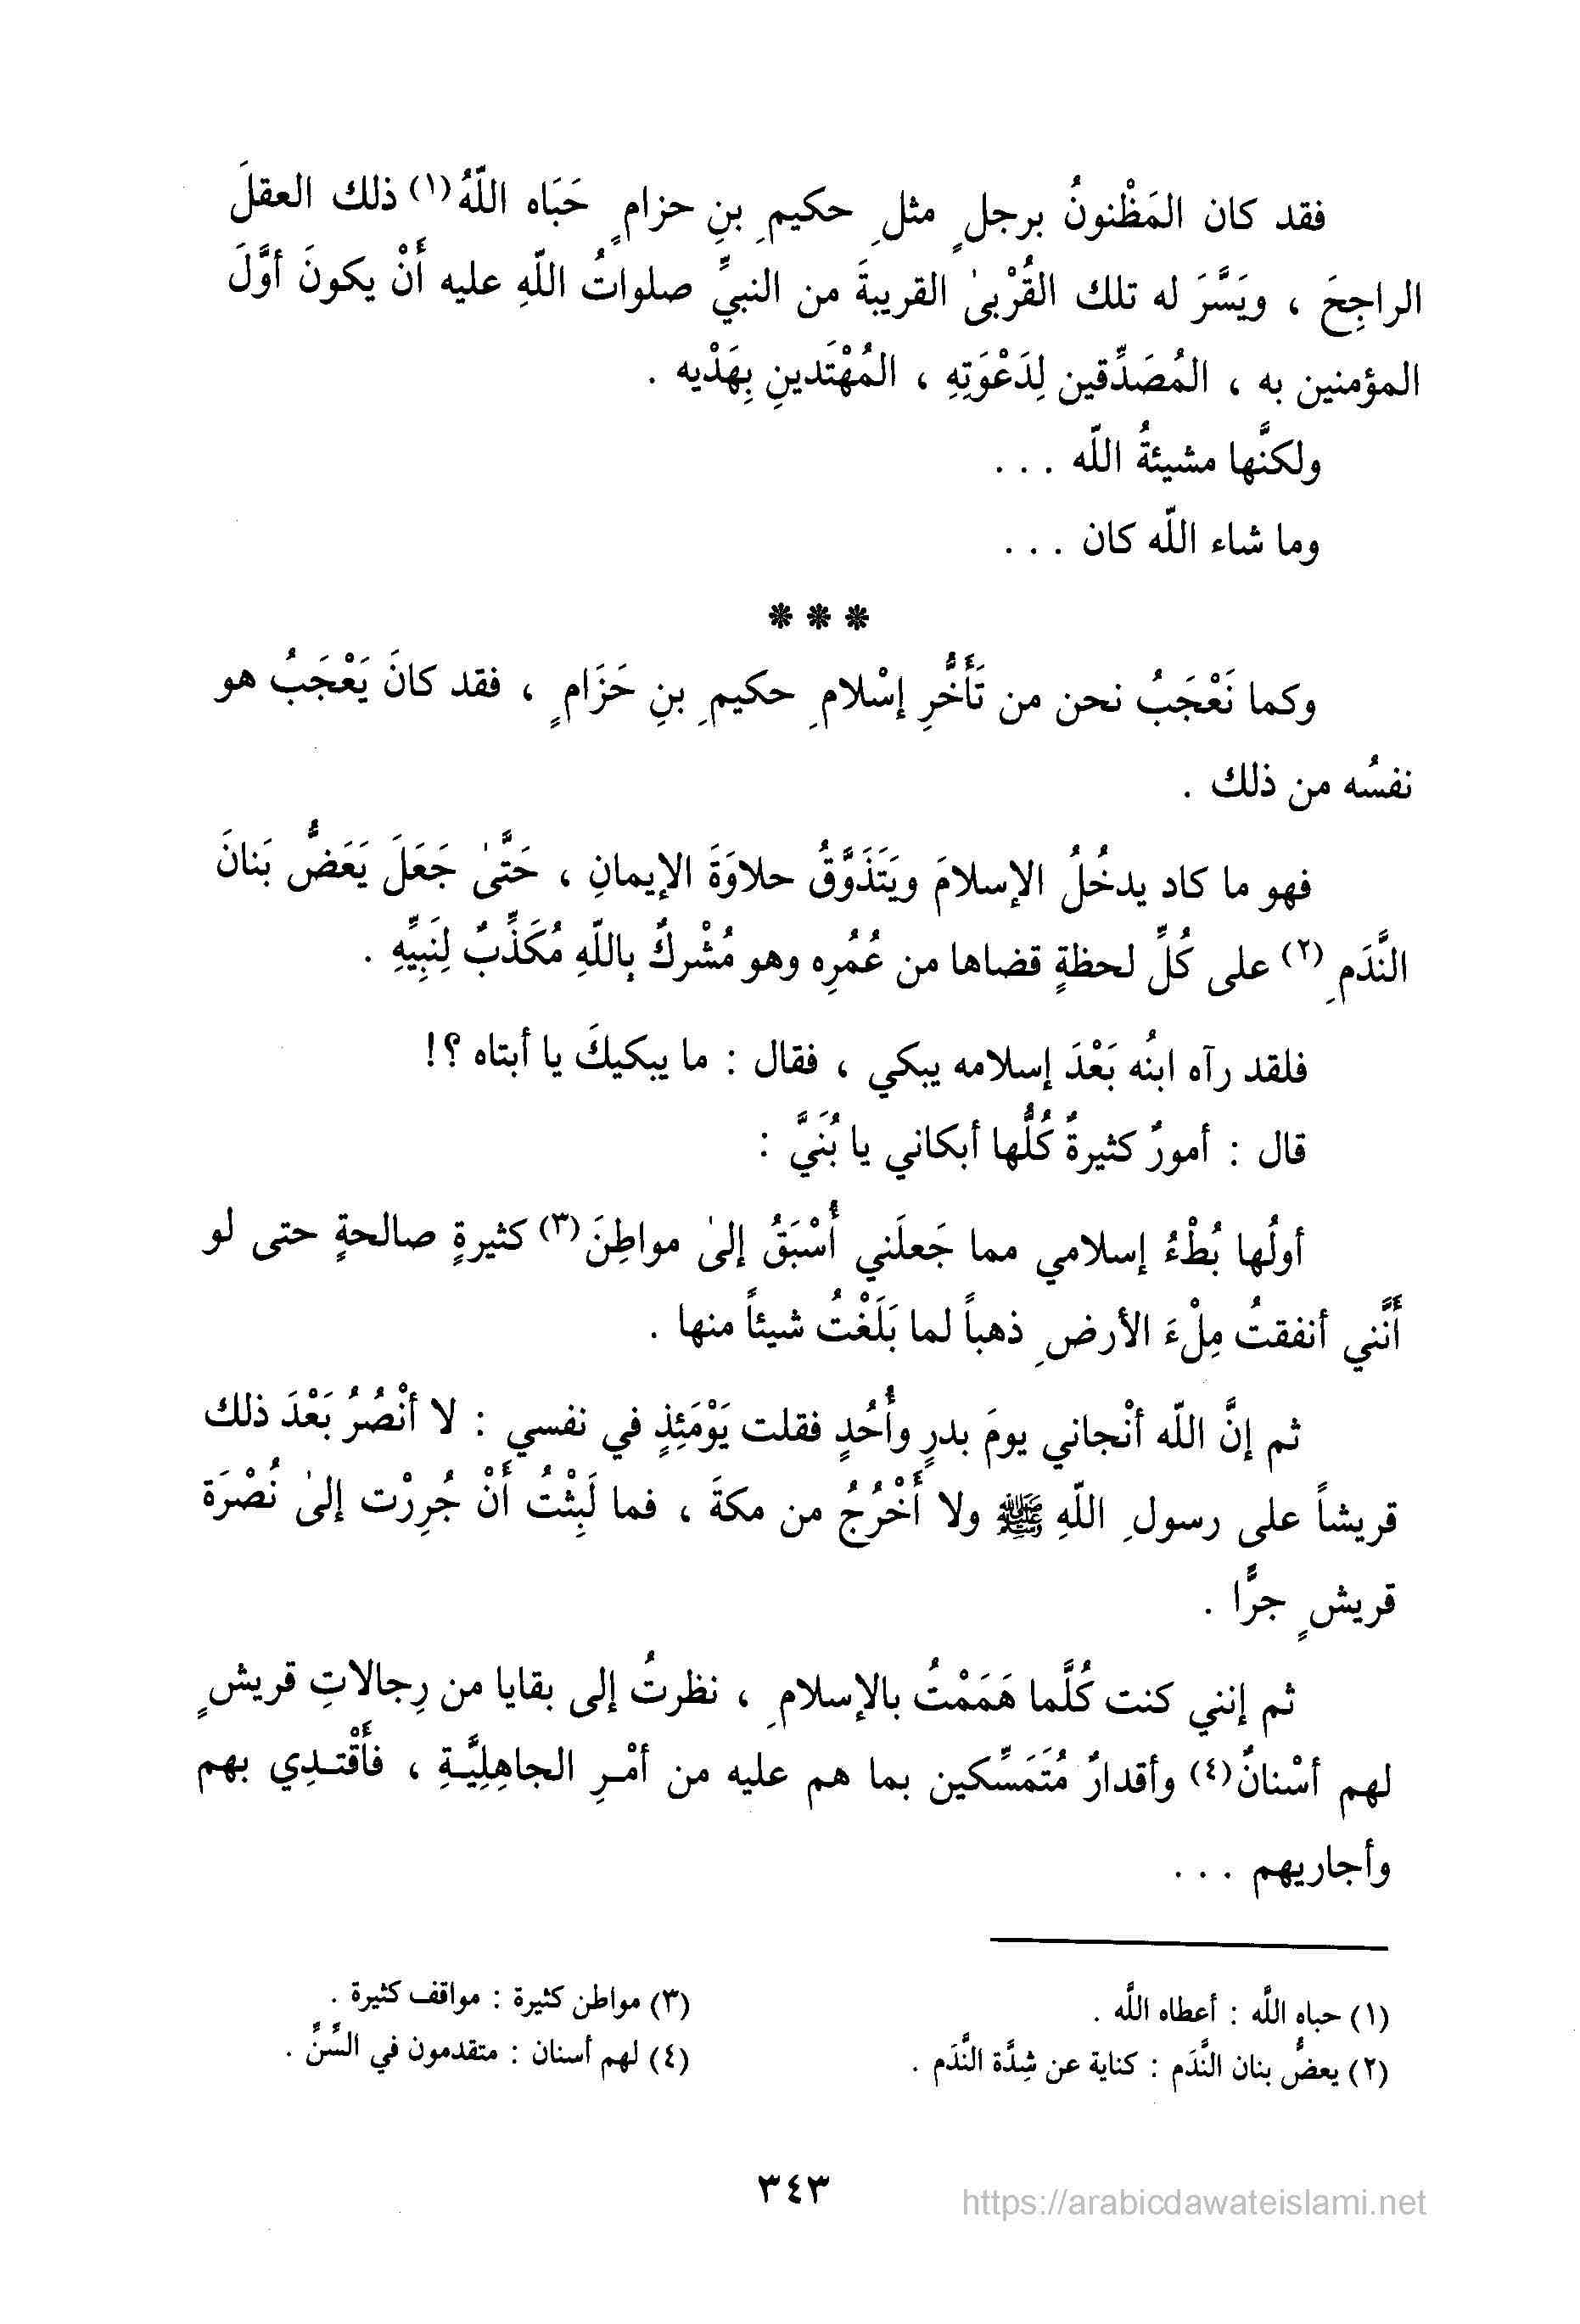 فقد كان المَظْنونُ برجلٍ مثلِ حكيمِ بنِ حزامٍ حَبَاه اللّهُ(١) ذلك العقلَ
الراجِحَ ، ويَسَّرَ له تلك القُرْبىٰ القريبةَ من النبيِّ صلواتُ اللّهِ عليه أَنْ يكونَ أوَّلَ
المؤمنين به ، المُصَدِّقين لِدَعْوَتِهِ ، المُهْتَدينِ بِهَدْيه .
ولكنَّها مشيئةُ اللّه . . .
وما شاء اللّه كان . . .
* * *
وكما نَعْجَبُ نحن من تَأَخُّرِ إسْلامِ حكيمِ بنِ حَزَامٍ ، فقد كانَ يَعْجَبُ هو
نفسُه من ذلك .
فهو ما كاد يدخُلُ الإسلامَ ويَتَذَوَّقُ حلاوَةَ الإيمانِ ، حَتَّىٰ جَعَلَ يَعَضُّ بَنانَ
النَّدَمِ(٢) على كُلِّ لحظةٍ قضاها من عُمُرِه وهو مُشْركٌ بِاللّهِ مُكَذِّبٌ لِنَبِيِّهِ .
فلقد رآه ابنُه بَعْدَ إسلامه يبكي ، فقال : ما يبكيكَ يا أبتاه ؟!
قال : أمورٌ كثيرةٌ كُلُّها أبكاني يا بُنَيَّ :
أولُها بُطْءُ إسلامي مما جَعلَني أُسْبَقُ إلىٰ مواطِنَ(٣) كثيرةٍ صالحةٍ حتى لو
أَنَّني أنفقتُ مِلْءَ الأرضِ ذهباً لما بَلَغْتُ شيئاً منها .
ثم إنَّ اللّه أنْجاني يومَ بدرٍ وأُحُدٍ فقلت يَوْمَئِذٍ في نفسي : لا أنْصُرُ بَعْدَ ذلك
قريشاً على رسولِ اللّهِ ﷺ ولا أَخْرُجُ من مكةَ ، فما لَبِثْتُ أَنْ جُرِرْت إلىٰ نُصْرَة
قريشٍ جرًّا .
ثم إنني كنت كُلَّما هَمَمْتُ بالإسلامِ ، نظرتُ إلى بقايا من رِجالاتِ قريشٍ
لهم أسْنانٌ(٤) وأقدارٌ مُتَمَسِّكين بما هم عليه من أمْـرِ الجاهِلِيَّـةِ ، فأَقْتـدِي بهم
وأجاريهم . . .
(١) حباه اللَّه : أعطاه اللَّه .
(٢) يعضُّ بنان النَّدَم : كناية عن شِدَّة النَّدَم .
(٣) مواطن كثيرة : مواقف كثيرة .
(٤) لهم أسنان : متقدمون في السِّنِّ .
٣٤٣
https://arabicdawateislami.net